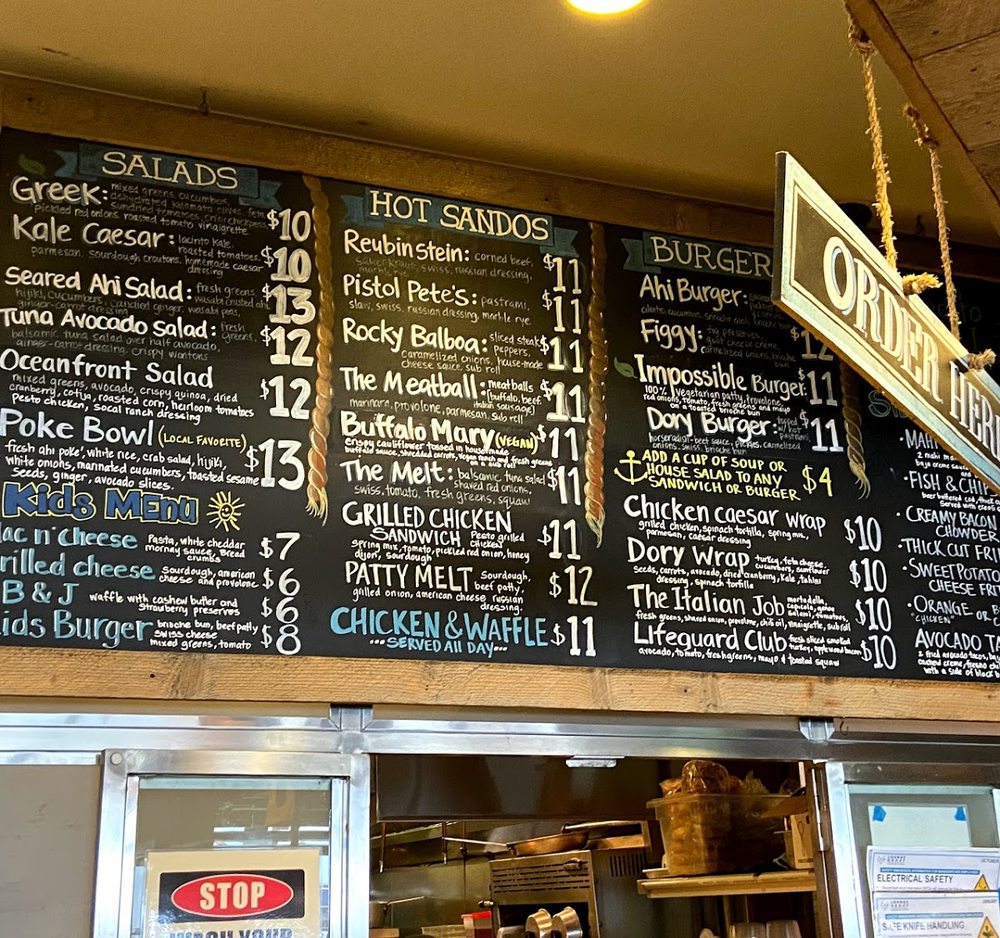 SALADS
Greek: mixed greens, cucumbers,
dehydrated kalamata olives, feta,
Sundried tomatoes, croutons,
pickled red onions, roasted tomato vinaigrette
$10
Kale Caesar: lacinto kale,
roasted tomatoes,
parmesan, sourdough croutons, homemade caesar
dressing
$10
Seared Ahi Salad: fresh greens,
wasabi crusted ahi,
hijiki, cucumbers, candied ginger, wasabi peas,
ginger-carrot dressing
$13
Tuna Avocado Salad: fresh
greens,
balsamic tuna salad over half avocado,
ginger-carrot dressing, crispy wontons
$12
Oceanfront Salad
mixed greens, avocado, crispy quinoa, dried
cranberry, cotija, roasted corn, heirloom tomatoes
Pesto chicken, socal ranch dressing
$12
Poke Bowl (LOCAL FAVORITE)
fresh ahi poke, white rice, crab salad, hijiki,
white onions, marinated cucumbers, toasted sesame
Seeds, ginger, avocado slices.
$13
Kids MENU
ac n' cheese Pasta, white cheddar
mornay sauce, Bread
crumbs
$7
rilled cheese Sourdough, american
cheese and provolone
$6
B & J waffle with cashew butter and
Strawberry preserves
$6
ids Burger brioche bun, beef patty
swiss cheese
mixed greens, tomato
$8
HOT SANDOS
Reubinstein: corned beef,
sauerkraut, swiss, russian dressing,
marble rye
$11
Pistol Pete's: pastrami,
slaw, swiss, russian dressing, marble rye.
$11
Rocky Balboa: sliced steak
peppers,
caramelized onions, house-made
cheese sauce, sub roll
$11
The Meatball: meatballs
(buffalo, beef,
italian sausage)
marinara, provolone, parmesan, Sub roll
$11
Buffalo Mary (VEGAN)
crispy cauliflower tossed in housemade
buffalo sauce, shredded carrots, vegan
$11
The Melt: balsamic tuna salad
shaved red onions,
swiss, tomato, fresh greens, squaw
$11
GRILLED CHICKEN
SANDWICH Pesto grilled
chicken
spring mix, tomato, pickled red onion, honey
dijon, sourdough
$11
PATTY MELT Sourdough,
beef patty,
grilled onion, american cheese russian
dressing.
$12
CHICKEN & WAFFLE
...SERVED ALL DAY...
$11
BURGER
Ahi Burger:
Figgy: fig preserves
goat cheese
caramelized onions,
12
Impossible Burger:
100% vegetarian patty, provolone,
red onions, tomato, fresh greens and mayo
on a toasted brioche bun
$11
Dory Burger: topped
w/
pastrami,
horseradish-beef sauce, pickles, caramelized
onions, swiss, brioche bun
$11
ADD A CUP OF SOUP OR
HOUSE SALAD TO ANY
SANDWICH OR BURGER
$4
Chicken caesar wrap
grilled chicken, spinach tortilla, spring mix,
parmesan, caesar dressing
$10
Dory Wrap turkey, feta cheese,
cucumbers, sunflower
seeds, carrots, avocado, dried cranberry, kale, tahini
dressing, spinach tortilla
$10
The Italian Job mortadella,
capicola, genoa
salami, tomatoes,
fresh greens, shaved onion, provolone, chili oil, vinaigrette, sub roll
$10
Lifeguard Club fresh sliced smoked
turkey, applewood bacon
avocado, tomato, fresh greens, mayo & toasted squaw
$10
ORDER HERE
MAH
FISH & CHI
CREAMY BACON
CHOWDER
THICK CUT FRI
SWEET POTATO
CHEESE FR
ORANGE or B
"CHICKEN"
AVOCADO TA
with a side of black b
STOP
WASH YOUR
ELECTRICAL SAFETY
SAFE KNIFE HANDLING